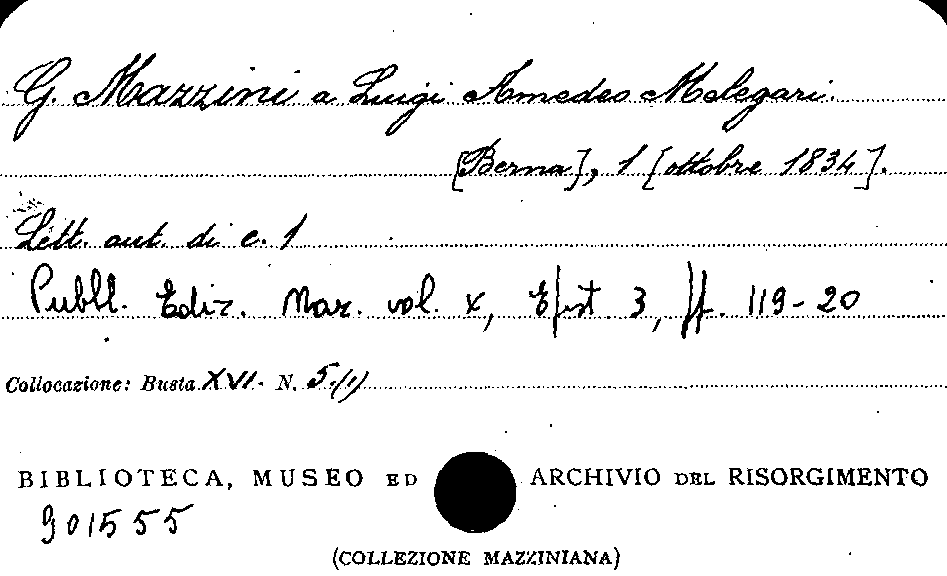 G. Mazzini a Luigi Amedeo Melegari.
[Berna], 1 [ottobre 1834].
Lett. aut. di c. 1
Pubbl. Ediz. Naz. vol. X, Epist. 3, pp. 119-20
Collocazione: Busta XVI. N. 5(1)
BIBLIOTECA, MUSEO ED ARCHIVIO DEL RISORGIMENTO
901555
(COLLEZIONE MAZZINIANA)